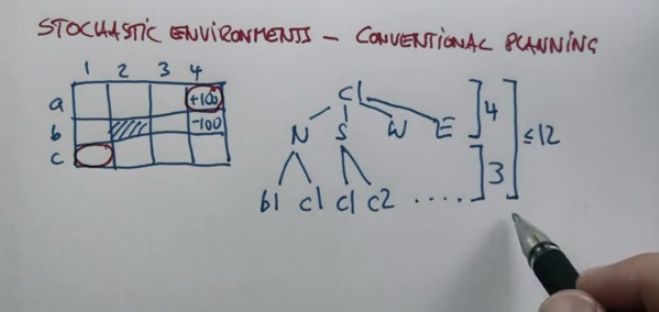 STOCHASTIC ENVIRONMENTS – CONVENTIONAL PLANNING
1 2 3 4
a +100
b -100
c
C1
N S W E
b1 c1 c1 c2 .....
4
3
≤12